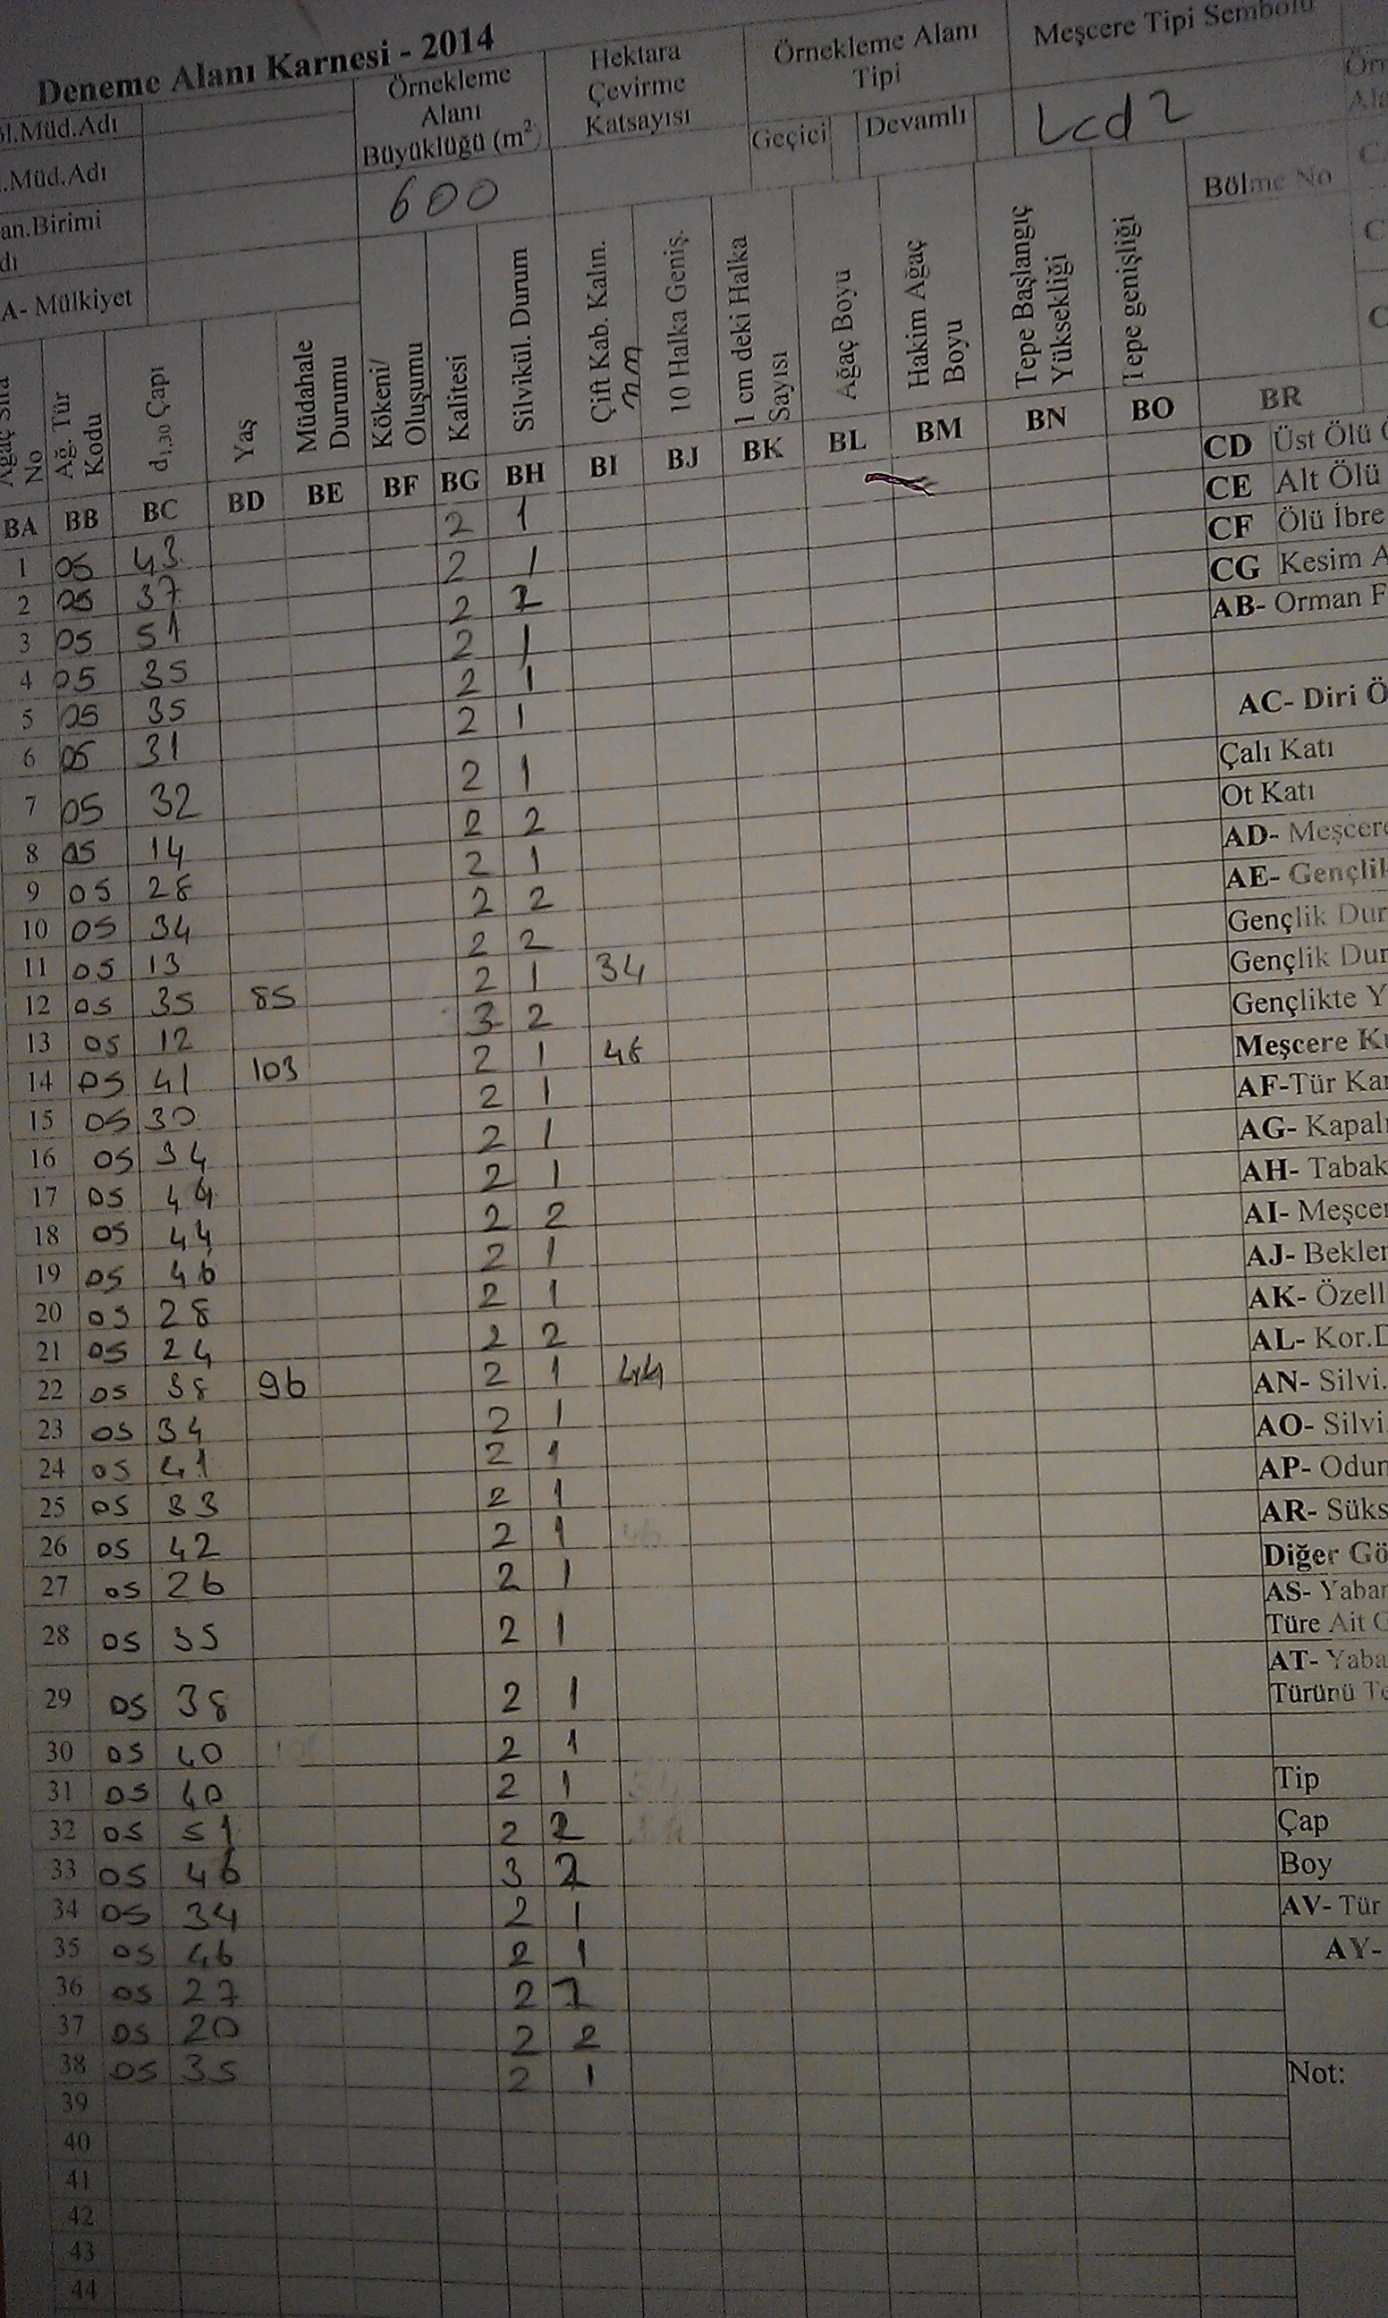 Deneme Alanı Karnesi - 2014
Örnekleme Alanı Büyüklüğü (m²)
600
Hektara Çevirme Katsayısı
Örnekleme Alanı Tipi
Geçici
Devamlı
Meşcere Tipi Sembolü
Lcd2
l.Müd.Adı
.Müd.Adı
an.Birimi
dı
A- Mülkiyet
Bölme No
Ağaç Sıra No
Ağ. Tür Kodu
d1,30 Çapı
Yaş
Müdahale Durumu
Kökeni/ Oluşumu
Kalitesi
Silvikül. Durum
Çift Kab. Kalın. mm
10 Halka Geniş.
1 cm deki Halka Sayısı
Ağaç Boyu
Hakim Ağaç Boyu
Tepe Başlangıç Yüksekliği
Tepe genişliği
BA BB BC BD BE BF BG BH BI BJ BK BL BM BN BO BR
1 05 43 2 1
2 05 37 2 1
3 05 51 2 2
4 05 35 2 1
5 05 35 2 1
6 05 31 2 1
7 05 32 2 1
8 05 14 2 2
9 05 28 2 1
10 05 34 2 2
11 05 13 2 2
12 05 35 85 2 1 34
13 05 12 3 2
14 05 41 103 2 1 48
15 05 30 2 1
16 05 34 2 1
17 05 44 2 1
18 05 44 2 2
19 05 46 2 1
20 05 28 2 1
21 05 24 2 2
22 05 38 96 2 1 44
23 05 34 2 1
24 05 41 2 1
25 05 33 2 1
26 05 42 2 1
27 05 26 2 1
28 05 35 2 1
29 05 38 2 1
30 05 40 2 1
31 05 40 2 1
32 05 51 2 2
33 05 46 3 2
34 05 34 2 1
35 05 46 2 1
36 05 27 2 1
37 05 20 2 2
38 05 35 2 1
39
40
41
42
43
44
CD Üst Ölü
CE Alt Ölü
CF Ölü İbre
CG Kesim A
AB- Orman F
AC- Diri Ö
Çalı Katı
Ot Katı
AD- Meşcere
AE- Gençlik
Gençlik Dur
Gençlik Dur
Gençlikte Y
Meşcere Ku
AF-Tür Kar
AG- Kapalı
AH- Tabak
AI- Meşcer
AJ- Bekler
AK- Özell
AL- Kor.D
AN- Silvi.
AO- Silvi.
AP- Odun
AR- Süks
Diğer Gö
AS- Yaban
Türe Ait G
AT- Yaba
Türünü Te
Tip
Çap
Boy
AV- Tür
AY-
Not: